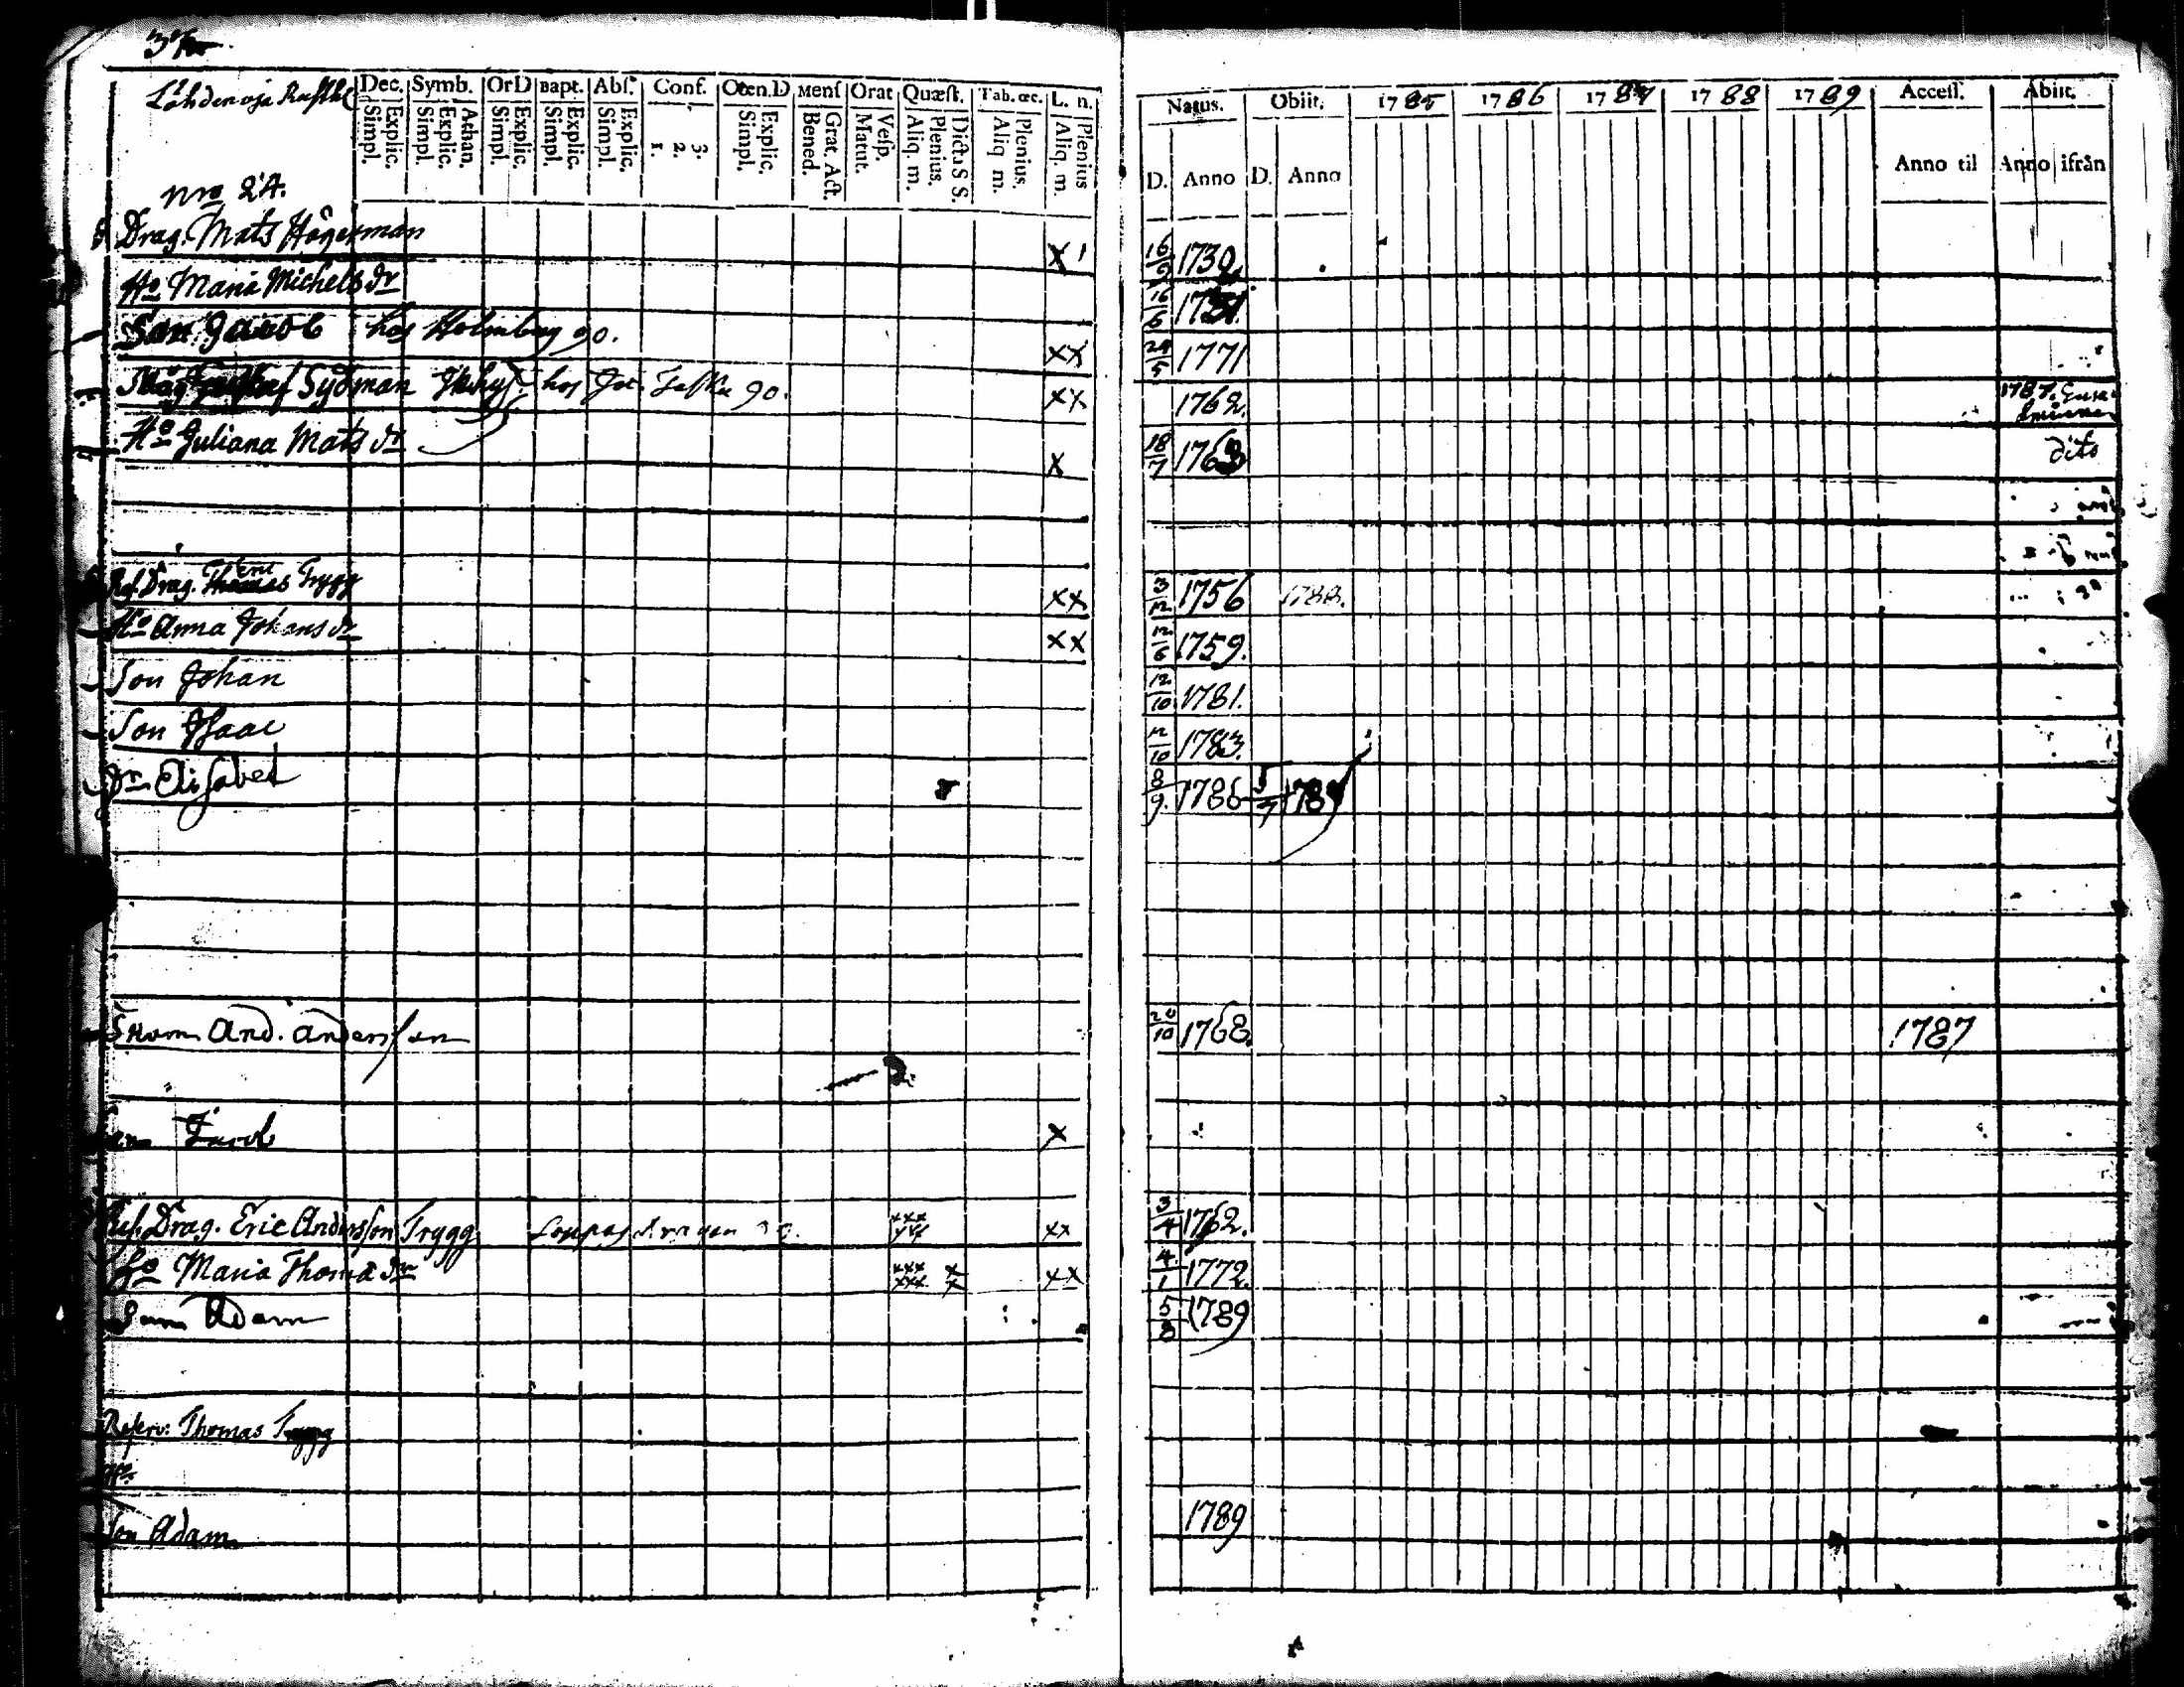 Dec. Symb. OrD Bapt. Abs. Conf. Oten.D Mens Orat Quæst. Tab. œc. L. n.
Explic. Simpl. Athan. Explic. Simpl. Explic. Simpl. Explic. Simpl. Explic. Simpl. 3. 2. 1. Explic. Simpl. Grat. Act. Bened. Vesp. Matut. Dicta S S. Plenius. Aliq. m. Plenius. Aliq m. Plenius Aliq. m.
Natus. Obiit. 1785 1786 1787 1788 1789 Access. Abiit.
D. Anno D. Anno Anno til Anno ifrån
nro 24.
Drag. Mats Högerman X 16 1730
Ho Maria Michels dr 16/6
Son Jacob hos Holmberg 90. XX 1771
Sydman hos 90. XX 1762. 1787.
Ho Juliana Mats dr X 18/7 dito
Ref. Drag. Trygg XX 3/12 1756 1788.
Ho Anna Johans dr XX 12/6 1759.
Son Johan 12/10 1781.
Son Isaac 12/10 1783.
Dr Elisabet 8/9. 1786
And. Andersson 20/10 1768. 1787
Jacob X
Ref. Drag. Eric Andersson Trygg xxx xx 3/4 1762.
Ho Maria Thomæ dr xxx xxx x x xx 4/1 1772.
Son Adam 5/8 1789
Reserv: Thomas Trygg
Ho
Son Adam 1789